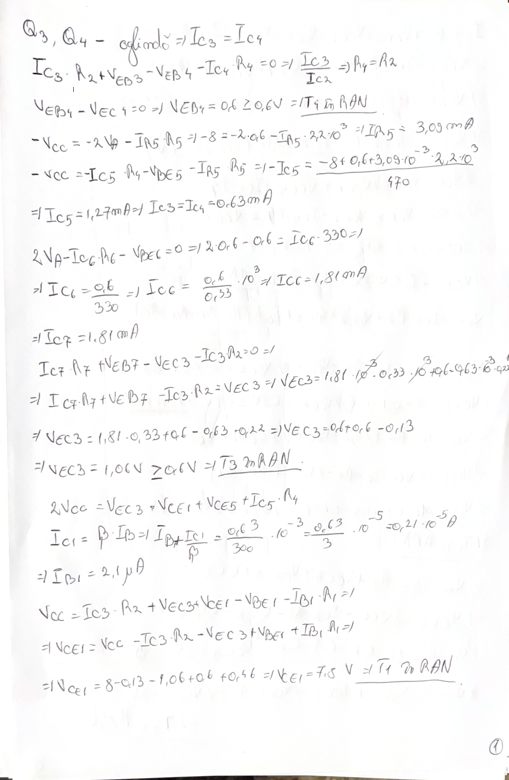 Q3, Q4 - oglindă => IC3 = IC4
IC3 · R2 + VEB3 - VEB4 - IC4 · R4 = 0 => IC3/IC2 => R4 = R2
VEB4 - VEC4 = 0 => VEB4 = 0,6 ≥ 0,6V => T4 în RAN
-VCC = -2VA - IR5 · R5 => -8 = -2·0,6 - IR5 · 2,2·10³ => IR5 = 3,09 mA
-VCC = -IC5 · R4 - VBE5 - IR5 · R5 => -IC5 = (-8 + 0,6 + 3,09·10⁻³ · 2,2·10³)/470
=> IC5 = 1,27mA => IC3 = IC4 = 0,63mA
2VA - IC6 · R6 - VBE6 = 0 => 2·0,6 - 0,6 = IC6 · 330 =>
=> IC6 = 0,6/330 => IC6 = 0,6/0,33 · 10⁻³ => IC6 = 1,81 mA
=> IC7 = 1,81 mA
IC7 · R7 + VEB7 - VEC3 - IC3·R2 = 0 =>
=> IC7·R7 + VEB7 - IC3·R2 = VEC3 => VEC3 = 1,81 · 10⁻³ · 0,33 · 10³ + 0,6 - 0,63 · 10⁻³ · 0,22
=> VEC3 = 1,81 · 0,33 + 0,6 - 0,63 · 0,22 => VEC3 = 0,6 + 0,6 - 0,13
=> VEC3 = 1,06V ≥ 0,6V => T3 în RAN
2VCC = VEC3 + VCE1 + VCE5 + IC5 · R4
IC1 = β · IB => IB1 = IC1/β = 0,63/300 · 10⁻³ = 0,63/3 · 10⁻⁵ = 0,21 · 10⁻⁵ A
=> IB1 = 2,1 μA
VCC = IC3 · R2 + VEC3 + VCE1 - VBE1 - IB1 · R1 =>
=> VCE1 = VCC - IC3 · R2 - VEC3 + VBE1 + IB1 · R1 =>
=> VCE1 = 8 - 0,13 - 1,06 + 0,6 + 0,46 => VCE1 = 7,5 V => T1 în RAN
1